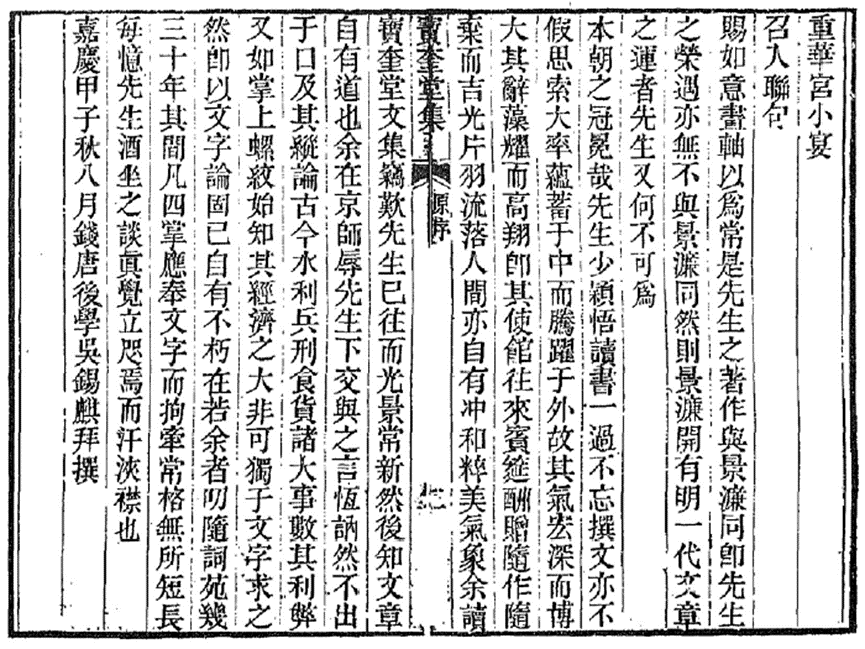 重華宮小宴
召入聯句
賜如意畫軸以爲常是先生之著作與景濂同卽先生
之榮遇亦無不與景濂同然則景濂開有明一代文章
之運者先生又何不可爲
本朝之冠冕哉先生少穎悟讀書一過不忘撰文亦不
假思索大率蘊蓄于中而騰躍于外故其氣宏深而博
大其辭藻耀而高翔卽其使館往來賓筵酬贈隨作隨
棄而吉光片羽流落人間亦自有冲和粹美氣象余讀
寶奎堂集 原序
寶奎堂文集竊歎先生已往而光景常新然後知文章
自有道也余在京師辱先生下交與之言恆訥然不出
于口及其縱論古今水利兵刑食貨諸大事數其利弊
又如掌上螺紋始知其經濟之大非可獨于文字求之
然卽以文字論固已自有不朽在若余者叨隨詞苑幾
三十年其間凡四掌應奉文字而拘牽常格無所短長
每憶先生酒坐之談眞覺立咫焉而汗浹襟也
嘉慶甲子秋八月錢唐後學吳錫麒拜撰